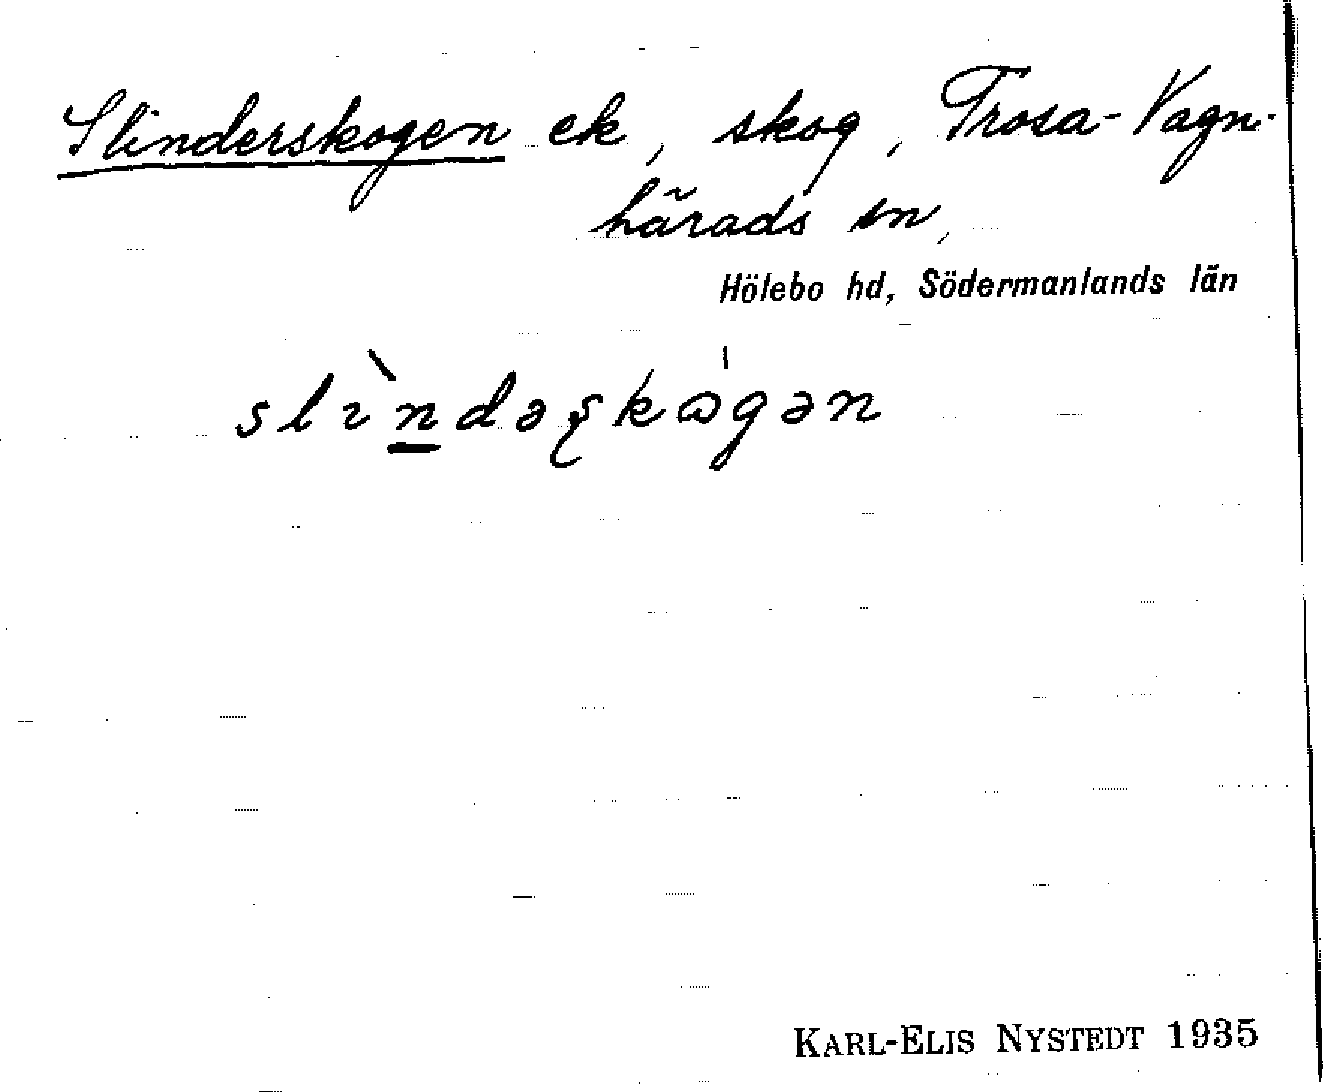 Slinderskogen ek, skog, Trosa-Vagn-
härads sn,
Hölebo hd, Södermanlands län
slɩ̀n̲dəʂkɷ̍gən
KARL-ELIS NYSTEDT 1935